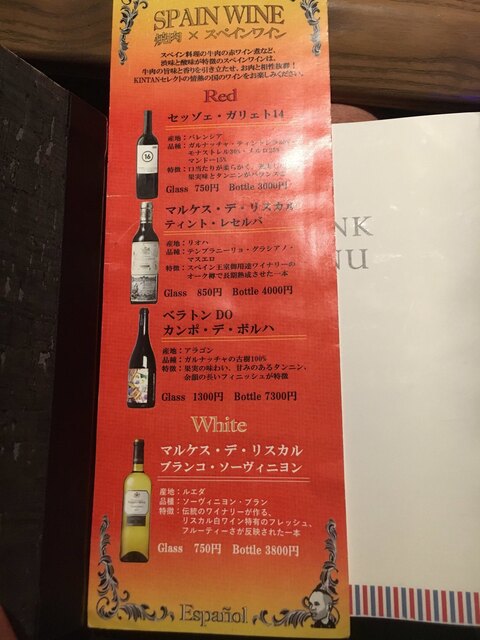 SPAIN WINE
焼肉 × スペインワイン
スペイン料理の牛肉の赤ワイン煮など、
渋味と酸味が特徴のスペインワインは、
牛肉の旨味と香りを引き立たせ、お肉と相性抜群！
KINTANセレクトの情熱の国のワインをお楽しみください。
Red
セッゾェ・ガリェト14
産地：バレンシア
品種：ガルナッチャ・ティントレラ
モナストレル30%
マンドー15%
特徴：口当たりが柔らかく、
果実味とタンニンがバランス
16
Glass 750円 Bottle 3600円
マルケス・デ・リスカル
ティント・レセルバ
産地：リオハ
品種：テンプラニーリョ・グラシアノ・
マスエロ
特徴：スペイン王室御用達ワイナリーの
オーク樽で長期熟成させた一本
Glass 850円 Bottle 4000円
ベラトン DO
カンポ・デ・ボルハ
産地：アラゴン
品種：ガルナッチャの古樹100%
特徴：果実の味わい、甘みのあるタンニン、
余韻の長いフィニッシュが特徴
Glass 1300円 Bottle 7300円
White
マルケス・デ・リスカル
ブランコ・ソーヴィニヨン
産地：ルエダ
品種：ソーヴィニヨン・ブラン
特徴：伝統のワイナリーが作る、
リスカル白ワイン特有のフレッシュ、
フルーティーさが反映された一本
Glass 750円 Bottle 3800円
Español
NK
NU